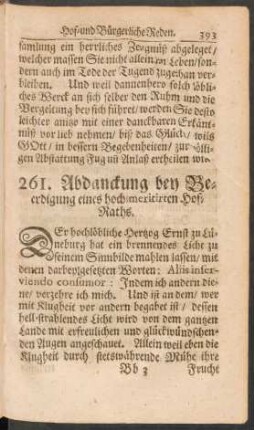 Hof- und Bürgerliche Reden. 393
samlung ein herrliches Zeugnüß abgeleget/
welcher massen Sie nicht allein im Leben/ son-
dern auch im Tode der Tugend zugethan ver-
bleiben. Und weil dannenhero solch löbli-
ches Werck an sich selber den Ruhm und die
Vergeltung bey sich führet/ werden Sie desto
leichter anitzo mit einer danckbaren Erkänt-
nüß vor lieb nehmen/ biß das Glück/ wils
GOtt/ in bessern Begebenheiten/ zur völli-
gen Abstattung Fug und Anlaß ertheilen wird.
261. Abdanckung bey Be-
erdigung eines hochmeritirten Hof-
Raths.
DEr hochlöbliche Hertzog Ernst zu Lü-
neburg hat ein brennendes Licht zu
seinem Sinnbilde mahlen lassen/ mit
denen darbeygesetzten Worten: Aliis inser-
viendo consumor: Indem ich andern die-
ne/ verzehre ich mich. Und ist an dem/ wer
mit Klugheit vor andern begabet ist/ dessen
hell-strahlendes Licht wird von dem gantzen
Lande mit erfreulichen und glückwündschen-
den Augen angeschauet. Allein weil eben die
Klugheit durch stetswährende Mühe ihre
Bb 3 Frucht